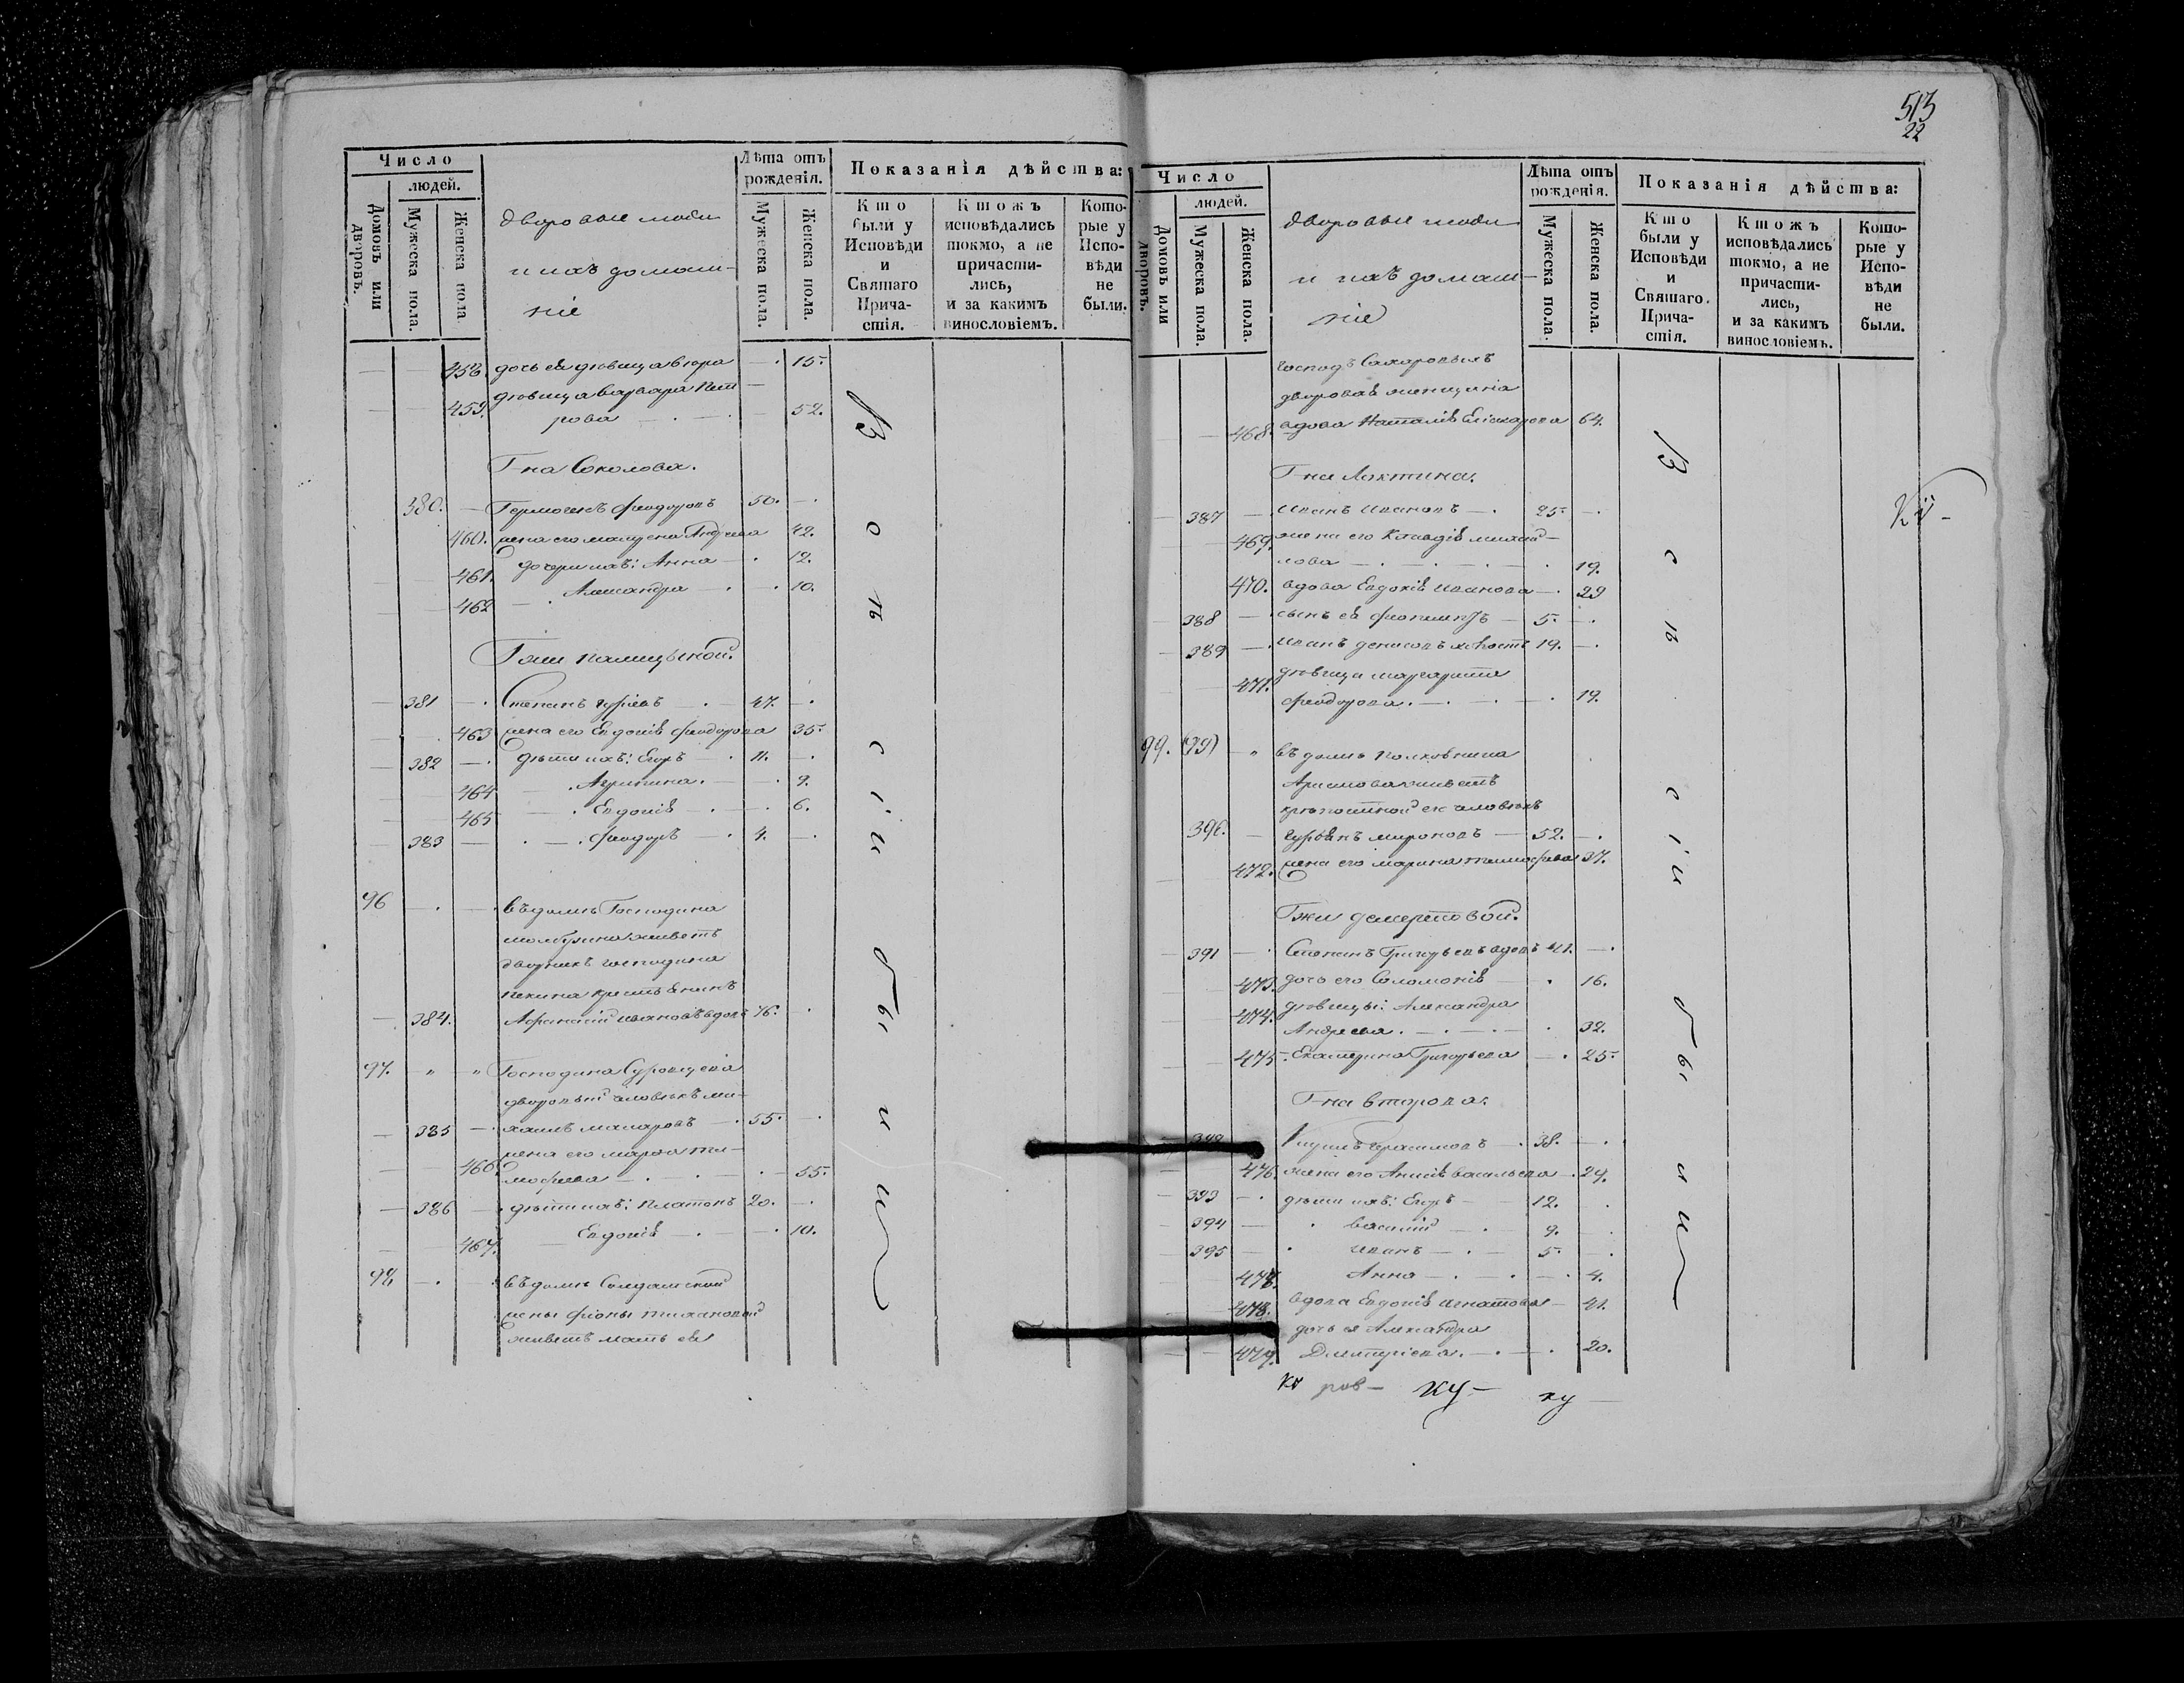 513
22
Число
людей.
Домовъ или дворовъ.
Мужеска пола.
Женска пола.
дворовые люди
и ихъ домаш-
ніе
Лѣта отъ рожденія.
Мужеска пола.
Женска пола.
Показанія дѣйства:
Кто были у Исповѣди и Святаго Прича-стія.
Ктожъ исповѣдались токмо, а не причасти-лись, и за какимъ винословіемъ.
Кото-рые у Испо-вѣди не были.
458. дочь ея дѣвица 15.
дѣвица варвара Пет-
459. рова 52.
Г-на Соколова.
380. Гермогенъ феодоровъ 50.
460. жена его Андреева 42.
461. дочери ихъ: Анна 12.
462 Александра 10.
Г-жи
381 Степанъ 47.
463 жена его Евдокія феодорова 35.
382 дѣти ихъ: Егоръ 11.
464 Агрипина. 9.
465 Евдокія 6.
383 феодоръ 4.
96 въ домѣ Господина
живетъ
дворникъ господина
крестьянинъ
384. Афанасій ивановъ вдовъ 76.
97. Господина
дворовый человѣкъ ми-
385 хаилъ макаровъ 55.
466. жена его марѳа ти-
мофеева 55.
386 дѣти ихъ: Платонъ 20.
467. Евдокія 10.
98 въ домѣ Солдатской
жены фіоны
живетъ мать ея
всѣ сіи были
Число
людей.
Домовъ или дворовъ.
Мужеска пола.
Женска пола.
дворовые люди
и ихъ домаш-
ніе
Лѣта отъ рожденія.
Мужеска пола.
Женска пола.
Показанія дѣйства:
Кто были у Исповѣди и Святаго Прича-стія.
Ктожъ исповѣдались токмо, а не причасти-лись, и за какимъ винословіемъ.
Кото-рые у Испо-вѣди не были.
господъ Сахаровыхъ
дворовая женщина
468. вдова Наталія 64.
Г-на Лахтина.
387 иванъ ивановъ 25.
469. жена его Клавдія михай-
лова 19.
470. вдова Евдокія иванова 29
388 сынъ ея 5.
389 иванъ денисовъ холостъ 19.
471. дѣвица маргарита
феодорова. 19.
99. (99) въ домѣ полковника
живетъ
крѣпостной ея человѣкъ
390. мироновъ 52.
472. жена его марина тимофеева 37.
Г-жи
391 Степанъ Григорьевъ вдовъ 41.
473. дочь его Соломонія 16.
474. дѣвицы: Александра
Андреева. 32.
475. Екатерина Григорьева 25.
Г-на второва.
392 Кирилъ герасимовъ 38.
476. жена его Анисія васильева 29.
393 дѣти ихъ: Егоръ 12.
394 василій 9.
395 иванъ 5.
477. Анна 4.
478. вдова Евдокія игнатова 41.
дочь ея Александра
479. Дмитріева. 20.
всѣ сіи были